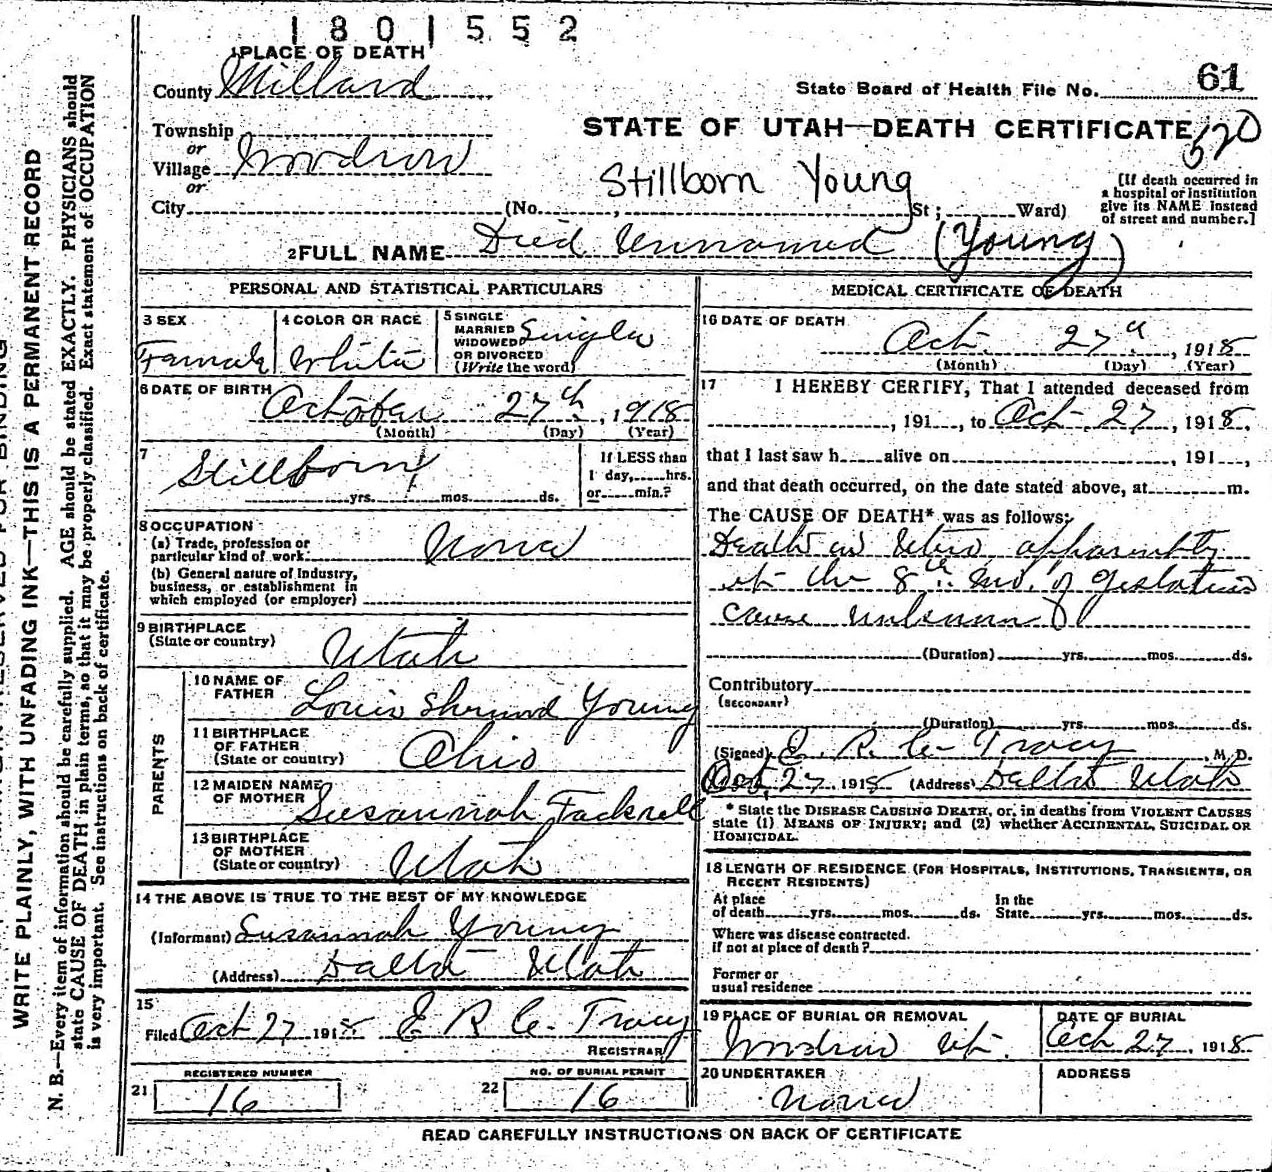 1801552
1 PLACE OF DEATH
County Millard
State Board of Health File No. 61
Township
or
Village Woodrow
or
STATE OF UTAH—DEATH CERTIFICATE 520
Stillborn Young
City (No. , St ; Ward)
[If death occurred in
a hospital or institution
give its NAME instead
of street and number.]
2 FULL NAME Died Unnamed (Young)
PERSONAL AND STATISTICAL PARTICULARS
3 SEX
Female
4 COLOR OR RACE
White
5 SINGLE
MARRIED
WIDOWED
OR DIVORCED
(Write the word)
Single
6 DATE OF BIRTH
October 27th, 1918
(Month) (Day) (Year)
7
Stillborn
yrs. mos. ds.
If LESS than
1 day, hrs.
or min.?
8 OCCUPATION
(a) Trade, profession or
particular kind of work
None
(b) General nature of Industry,
business, or establishment in
which employed (or employer)
9 BIRTHPLACE
(State or country)
Utah
PARENTS
10 NAME OF
FATHER
Louis Sherwood Young
11 BIRTHPLACE
OF FATHER
(State or country)
Ohio
12 MAIDEN NAME
OF MOTHER
Susannah Fackrell
13 BIRTHPLACE
OF MOTHER
(State or country)
Utah
14 THE ABOVE IS TRUE TO THE BEST OF MY KNOWLEDGE
(Informant) Susannah Young
(Address) Delta Utah
15
Filed Oct 27 1918 E. R. C. Tracy
REGISTRAR
21
REGISTERED NUMBER
16
22
NO. OF BURIAL PERMIT
16
MEDICAL CERTIFICATE OF DEATH
16 DATE OF DEATH
Oct. 27th, 1918
(Month) (Day) (Year)
17 I HEREBY CERTIFY, That I attended deceased from
, 191 , to Oct. 27, 1918,
that I last saw h alive on , 191 ,
and that death occurred, on the date stated above, at m.
The CAUSE OF DEATH* was as follows:
Death in Utero apparently
at the 8th. mo. of gestation
cause unknown
(Duration) yrs. mos. ds.
Contributory
(SECONDARY)
(Duration) yrs. mos. ds.
(Signed) E. R. C. Tracy, M. D.
Oct, 27 1918 (Address) Delta Utah
* State the DISEASE CAUSING DEATH, or, in deaths from VIOLENT CAUSES
state (1) MEANS OF INJURY; and (2) whether ACCIDENTAL, SUICIDAL OR
HOMICIDAL.
18 LENGTH OF RESIDENCE (FOR HOSPITALS, INSTITUTIONS, TRANSIENTS, OR
RECENT RESIDENTS)
At place
of death yrs. mos. ds.
In the
State yrs. mos. ds.
Where was disease contracted.
if not at place of death?
Former or
usual residence
19 PLACE OF BURIAL OR REMOVAL
Woodrow Ut.
DATE OF BURIAL
Oct 27, 1918
20 UNDERTAKER
None
ADDRESS
READ CAREFULLY INSTRUCTIONS ON BACK OF CERTIFICATE
RESERVED FOR BINDING
WRITE PLAINLY, WITH UNFADING INK—THIS IS A PERMANENT RECORD
N. B.—Every item of information should be carefully supplied. AGE should be stated EXACTLY. PHYSICIANS should
state CAUSE OF DEATH in plain terms, so that it may be properly classified. Exact statement of OCCUPATION
is very important. See instructions on back of certificate.